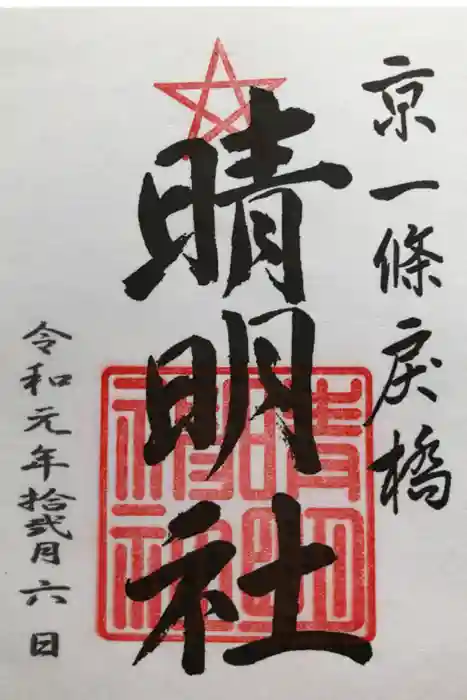 京一條戻橋
晴明社
晴明神社
令和元年拾弐月六日